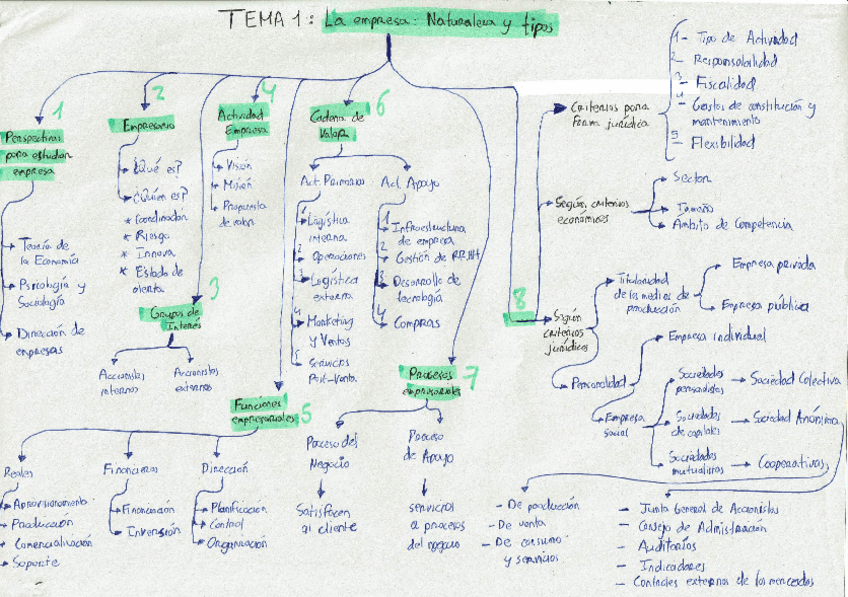 TEMA 1: La empresa: Naturaleza y tipos
1
Perspectivas
para estudiar
empresa
Teoría de
la Economía
Psicología y
Sociología
Dirección de
empresas
2
Empresario
¿Qué es?
¿Quien es?
* Coordinador
* Riesgo
* Innova
* Estado de
alerta
3
Grupos de
Interés
Accionistas
internos
Accionistas
externos
4
Actividad
Empresa
Visión
Misión
Propuesta
de valor
5
Funciones
empresariales
Reales
Aprovisionamiento
Producción
Comercialización
Soporte
Financieras
Financiación
Inversión
Dirección
Planificación
Control
Organización
6
Cadena de
Valor
Act. Primarias
1 Logística
interna
2 Operaciones
3 Logística
externa
4 Marketing
y Ventas
5 Servicios
Post-Venta
Act. Apoyo
1 Infraestructura
de empresa
2 Gestión de RRHH
3 Desarrollo de
tecnología
4 Compras
7
Procesos
empresariales
Proceso del
Negocio
Satisfacen
al cliente
Proceso
de Apoyo
servicios
a procesos
del negocio
8
Criterios para
forma jurídica
1- Tipo de Actividad
2- Responsabilidad
3- Fiscalidad
4- Gastos de constitución y
mantenimiento
5- Flexibilidad
Según criterios
económicos
Sector
Tamaño
Ámbito de Competencia
Según
criterios
jurídicos
Titularidad
de los medios de
producción
Empresa privada
Empresa pública
Personalidad
Empresa individual
Empresa
social
Sociedades
personalistas
Sociedad Colectiva
Sociedades
de capitales
Sociedad Anónima
Sociedades
mutualistas
Cooperativas
- De producción
- De venta
- De consumo
y servicios
- Junta General de Accionistas
- Consejo de Administración
- Auditorías
- Indicadores
- Controles externos de los mercados